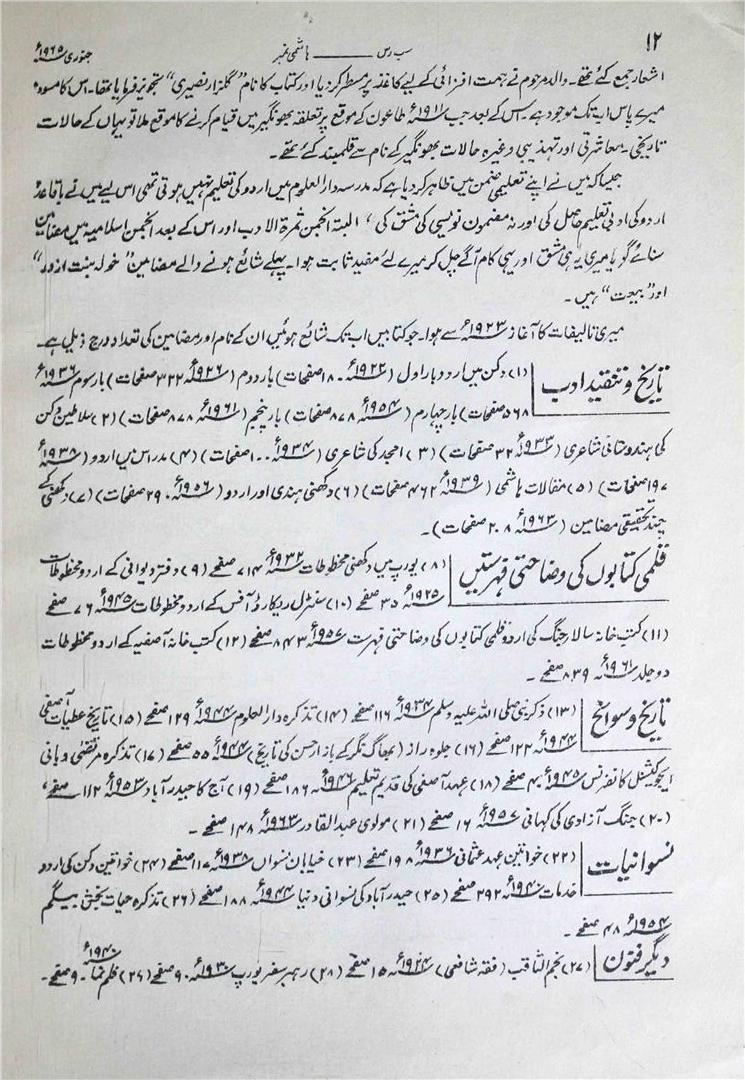 ۱۲
سب رس ــــــ ہاشمی نمبر
جنوری ۱۹۶۵ء
اشعار جمع کئے تھے۔ والد مرحوم نے ہمت افزائی کے لیے کاغذ پر مسطر کر دیا اور کتاب کا نام ”گلزار نصیری“ تجویز فرمایا تھا۔ اس کا مسودہ
میرے پاس اب تک موجود ہے۔ اس کے بعد جب ۱۹۱۱ء طاعون کے موقع پر تعلقہ بھونگیر میں قیام کرنے کا موقع ملا تو یہاں کے حالات
تاریخی۔ معاشرتی اور تہذیبی وغیرہ حالات بھونگیر کے نام سے قلمبند کئے تھے۔
جیسا کہ میں نے اپنے تعلیمی ضمن میں ظاہر کر دیا ہے کہ مدرسہ دارالعلوم میں اردو کی تعلیم نہیں ہوتی تھی اس لیے میں نے باقاعدہ
اردو کی ادبی تعلیم حاصل کی اور نہ مضمون نویسی کی مشق کی، البتہ انجمن ثمرۃ الادب اور اس کے بعد انجمن اسلامیہ میں مضامین
سنائے گویا میری یہ ہی مشق اور یہی کام آگے چل کر میرے لئے مفید ثابت ہوا۔ پہلے شائع ہونے والے مضامین ”خولہ بنت ازور“
اور ”بیعت“ ہیں۔
میری تالیفات کا آغاز ۱۹۲۳ء سے ہوا۔ جو کتابیں اب تک شائع ہوئیں ان کے نام اور مضامین کی تعداد درج ذیل ہے۔
تاریخ و تنقید ادب
(۱) دکن میں اردو بار اول (۱۹۲۳ء ۱۸۰ صفحات) بار دوم (۱۹۲۶ء ۳۲۲ صفحات) بار سوم ۱۹۳۶ء
۵۶۸ صفحات) بار چہارم (۱۹۵۴ء ۸۷۸ صفحات) بار پنجم (۱۹۶۱ء ۸۷۸ صفحات) (۲) سلاطین دکن
کی ہندوستانی شاعری (۱۹۳۳ء ۳۲ صفحات) (۳) امجد کی شاعری (۱۹۳۴ء ۱۰۰ صفحات) (۴) مدراس میں اردو (۱۹۳۸ء
۱۹۷ صفحات) (۵) مقالات ہاشمی (۱۹۳۹ء ۴۶۲ صفحات) (۶) دکھنی ہندی اور اردو (۱۹۵۶ء ۲۹۰ صفحات) (۷) دکھنی کے
چند تحقیقی مضامین (۱۹۶۳ء ۲۰۸ صفحات)۔
قلمی کتابوں کی وضاحتی فہرستیں
(۸) یورپ میں دکھنی مخطوطات ۱۹۳۲ء ۷۱۴ صفحے (۹) دفتر دیوانی کے اردو مخطوطات
۱۹۲۵ء ۳۵ صفحے (۱۰) سنٹرل ریکارڈ آفس کے اردو مخطوطات ۱۹۴۵ء ۷۶ صفحے
(۱۱) کتب خانہ سالار جنگ کی اردو قلمی کتابوں کی وضاحتی فہرست ۱۹۵۷ء ۸۴۳ صفحے (۱۲) کتب خانہ آصفیہ کے اردو مخطوطات
دو جلد ۱۹۶۱ء ۸۳۹ صفحے۔
تاریخ و سوانح
(۱۳) ذکر نبی صلی اللہ علیہ وسلم ۱۹۳۴ء ۱۱۶ صفحے (۱۴) تذکرہ دارالعلوم ۱۹۴۴ء ۱۲۹ صفحے (۱۵) تاریخ عطیات آصفی
۱۹۴۴ء ۱۲۲ صفحے (۱۶) جلوہ راز (بھاگ نگر کے باز ارحسن کی تاریخ) ۱۹۴۴ء ۵۵ صفحے (۱۷) تذکرہ مرتضیٰ و بانی
ایجوکیشنل کانفرنس ۱۹۴۵ء ۴۰ صفحے (۱۸) عہد آصفی کی قدیم تعلیم ۱۹۴۶ء ۱۸۶ صفحے (۱۹) آج کا حیدرآباد ۱۹۵۳ء ۱۱۲ صفحے،
(۲۰) جنگ آزادی کی کہانی ۱۹۵۷ء ۱۶ صفحے (۲۱) مولوی عبدالقادر ۱۹۶۳ء ۱۴۸ صفحے۔
نسوانیات
(۲۲) خواتین عہد عثمانی ۱۹۳۶ء ۱۹۸ صفحے (۲۳) خیابان نسواں ۱۹۳۸ء ۱۱۷ صفحے (۲۴) خواتین دکن کی اردو
خدمات ۱۹۴۰ء ۲۹۲ صفحے (۲۵) حیدرآباد کی نسوانی دنیا ۱۹۴۴ء ۱۸۸ صفحے (۲۶) تذکرہ حیات بخشی بیگم
۱۹۵۴ء ۴۸ صفحے۔
دیگر فنون
(۲۷) نجم الثاقب (فقہ شافعی) ۱۹۲۴ء ۱۵ صفحے (۲۸) رہبر سفر یورپ ۱۹۳۰ء ۹۰ صفحے (۲۹) فلم نما ۱۹۴۰ء ۹۰ صفحے۔